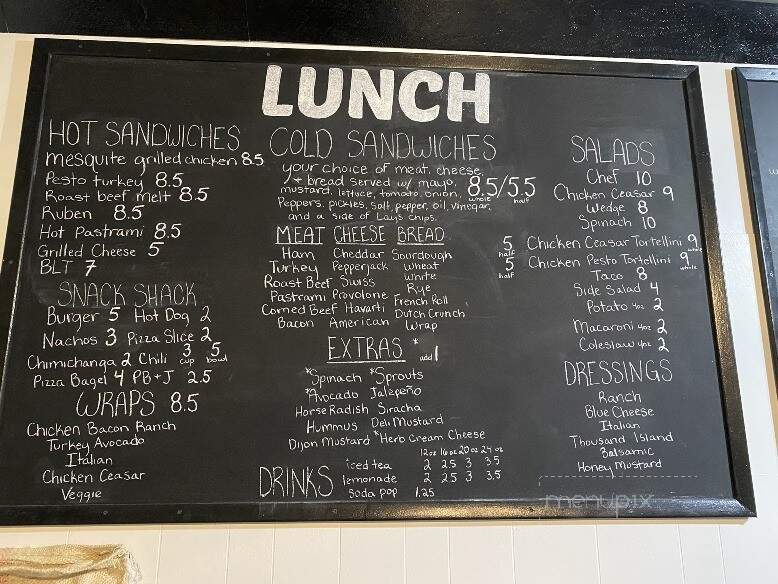 LUNCH
HOT SANDWICHES
mesquite grilled chicken 8.5
Pesto turkey 8.5
Roast beef melt 8.5
Ruben 8.5
Hot Pastrami 8.5
Grilled Cheese 5
BLT 7
SNACK SHACK
Burger 5 Hot Dog 2
Nachos 3 Pizza Slice 2
Chimichanga 2 Chili 3 cup 5 bowl
Pizza Bagel 4 PB+J 2.5
WRAPS 8.5
Chicken Bacon Ranch
Turkey Avocado
Italian
Chicken Ceasar
Veggie
COLD SANDWICHES
your choice of meat, cheese,
+ bread served w/ mayo,
mustard, lettuce, tomato, onion,
Peppers, pickles, salt, pepper, oil, vinegar,
and a side of Lay's chips.
8.5/5.5
whole half
MEAT CHEESE BREAD
Ham Cheddar Sourdough
Turkey Pepperjack wheat
Roast Beef Swiss white
Pastrami Provolone Rye
Corned Beef Havarti French Roll
Bacon American Dutch Crunch
Wrap
EXTRAS * add 1
*Spinach *Sprouts
*Avocado Jalepeño
Horse Radish Siracha
Hummus Deli Mustard
Dijon Mustard *Herb Cream Cheese
DRINKS
12oz 16oz 20oz 24oz
iced tea 2 2.5 3 3.5
lemonade 2 2.5 3 3.5
Soda pop 1.25
SALADS
Chef 10
Chicken Ceasar 9
Wedge 8
Spinach 10
5 half Chicken Ceasar Tortellini 9 whole
5 half Chicken Pesto Tortellini 9 whole
Taco 8
Side Salad 4
Potato 4oz 2
Macaroni 4oz 2
Coleslaw 4oz 2
DRESSINGS
Ranch
Blue Cheese
Italian
Thousand Island
Balsamic
Honey Mustard
menupix